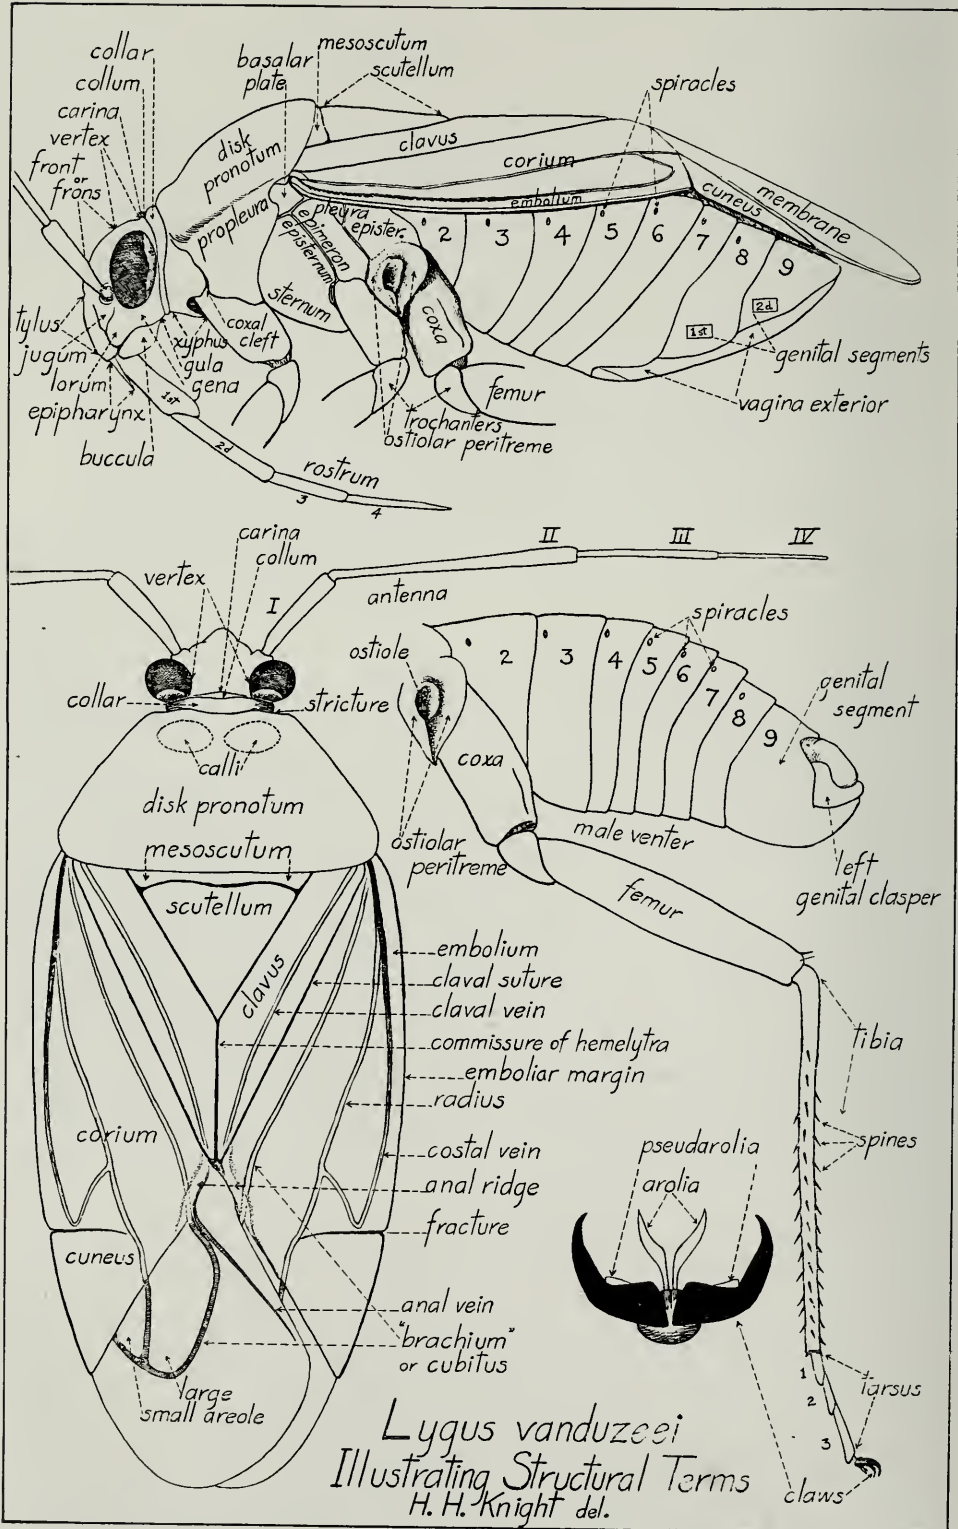 collar
collum
carina
vertex
front
or
frons
basalar
plate
mesoscutum
scutellum
spiracles
disk
pronotum
clavus
corium
embolium
cuneus
membrane
propleura
pleura
epister.
epimeron
episternum
sternum
2
3
4
5
6
7
8
9
1st
2d
tylus
jugum
lorum
epipharynx
buccula
xyphus
gula
gena
coxal
cleft
coxa
femur
trochanters
ostiolar peritreme
genital segments
vagina exterior
1st
2d
rostrum
3
4
carina
collum
vertex
I
II
III
IV
antenna
collar
stricture
calli
disk pronotum
mesoscutum
scutellum
clavus
corium
cuneus
embolium
claval suture
claval vein
commissure of hemelytra
emboliar margin
radius
costal vein
anal ridge
fracture
anal vein
"brachium"
or cubitus
large
small areole
ostiole
spiracles
2
3
4
5
6
7
8
9
genital
segment
coxa
ostiolar
peritreme
male venter
left
genital clasper
femur
tibia
spines
pseudarolia
arolia
1
2
3
tarsus
claws
Lygus vanduzeei
Illustrating Structural Terms
H. H. Knight del.